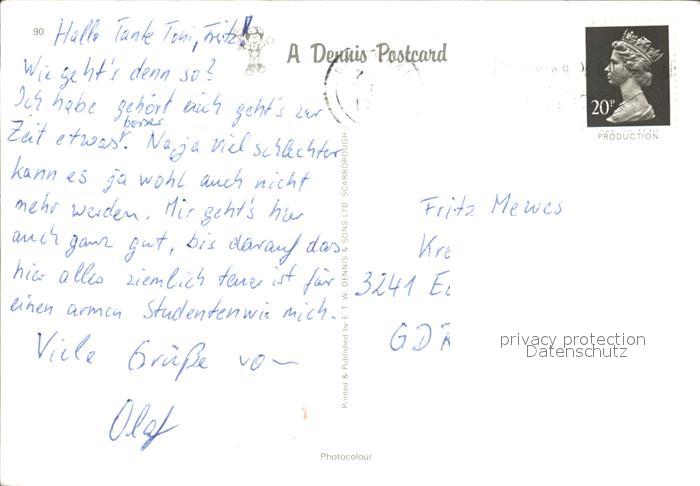 90
Hallo Tante Toni, Fritz!
A Dennis Postcard
Wie geht's denn so?
Ich habe gehört euch geht's zur
Zeit etwas besser. Na, ja viel schlechter
kann es ja wohl auch nicht
mehr werden. Mir geht's hier
auch ganz gut, bis darauf das
hier alles ziemlich teuer ist für
einen armen Studenten wie mich.
Viele Grüße von
Olaf
Printed & Published by E. T. W. DENNIS & SONS LTD. SCARBOROUGH
20P
PRODUCTION
Fritz Mewes
Kre
3241 E
GDR
privacy protection
Datenschutz
Photocolour